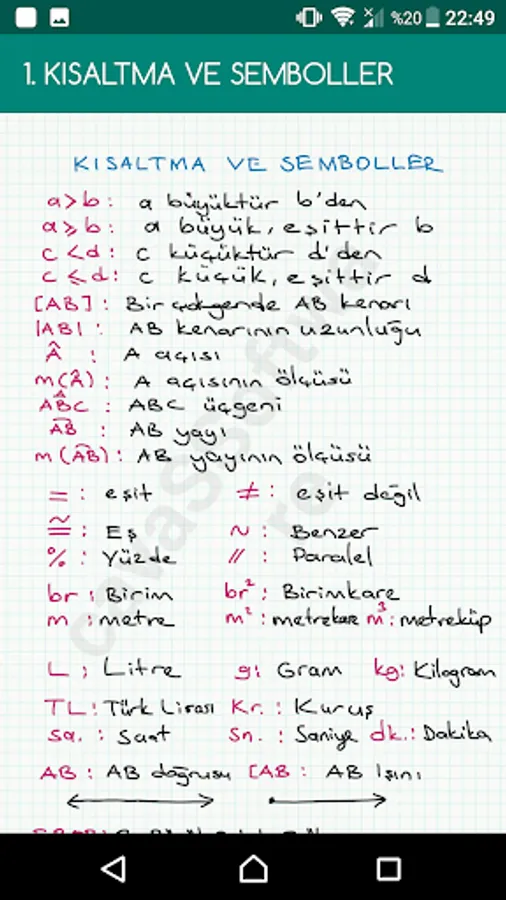 %20 22:49
1. KISALTMA VE SEMBOLLER
KISALTMA VE SEMBOLLER
a>b: a büyüktür b'den
a⩾b: a büyük, eşittir b
c<d: c küçüktür d'den
c⩽d: c küçük, eşittir d
[AB]: Bir çokgende AB kenarı
|AB|: AB kenarının uzunluğu
Â : A açısı
m(Â): A açısının ölçüsü
AB̂C: ABC üçgeni
A͡B : AB yayı
m(A͡B): AB yayının ölçüsü
= : eşit ≠ : eşit değil
≅ : Eş ~ : Benzer
% : Yüzde // : Paralel
br : Birim br² : Birimkare
m : metre m² : metrekare m³ : metreküp
L : Litre g : Gram kg : Kilogram
TL : Türk Lirası Kr. : Kuruş
sa. : Saat Sn. : Saniye dk. : Dakika
AB : AB doğrusu [AB : AB Işını
cavaSSoftware